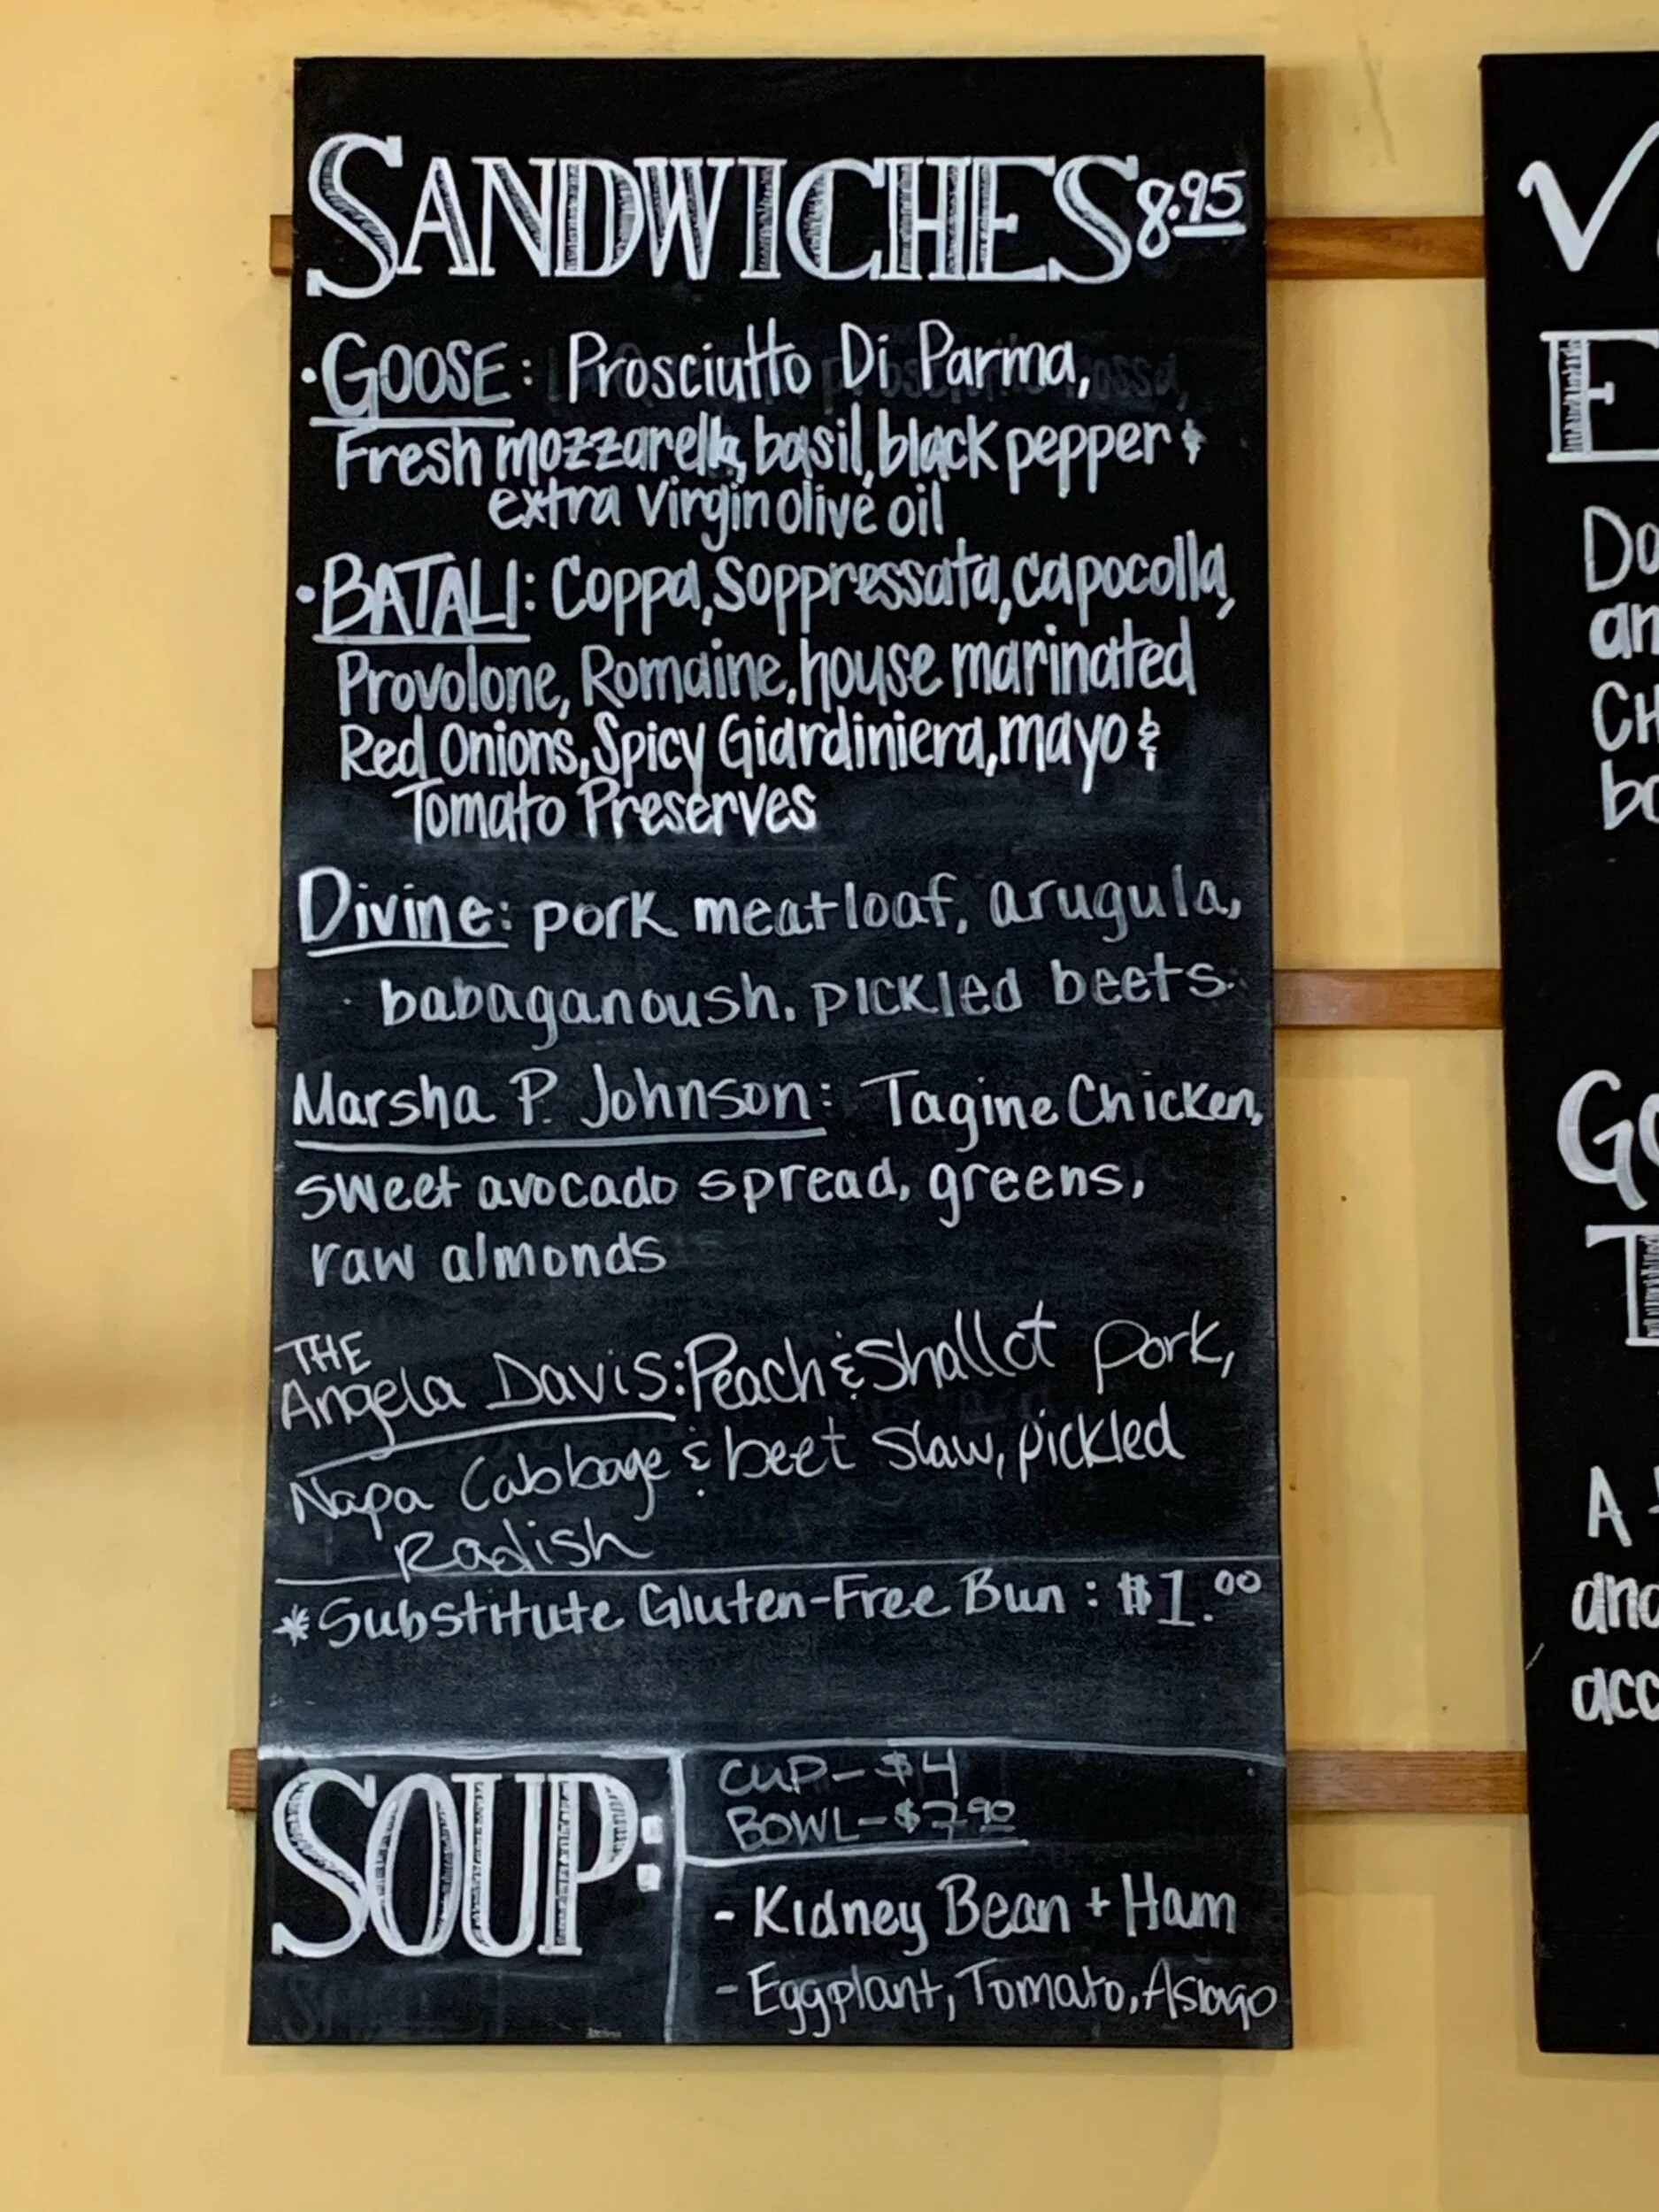 SANDWICHES 8.95
• GOOSE: Prosciutto Di Parma,
Fresh mozzarella, basil, black pepper &
extra virgin olive oil
• BATALI: Coppa, Soppressata, capocolla,
Provolone, Romaine, house marinated
Red Onions, Spicy Giardiniera, mayo &
Tomato Preserves
Divine: pork meatloaf, arugula,
babaganoush, pickled beets.
Marsha P. Johnson: Tagine Chicken,
sweet avocado spread, greens,
raw almonds
THE
Angela Davis: Peach & Shallot pork,
Napa Cabbage & beet slaw, pickled
Radish
*Substitute Gluten-Free Bun: $1.00
SOUP:
CUP – $4
BOWL – $7.90
- Kidney Bean + Ham
- Eggplant, Tomato, Asiago
E
Do
an
CH
bo
Go
T
A
and
acc